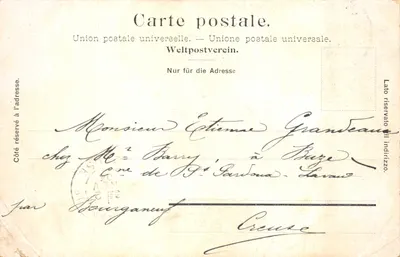 Carte postale.
Union postale universelle. — Unione postale universale.
Weltpostverein.
Nur für die Adresse
Côté réservé à l'adresse.
Lato riservato all indirizzo.
Monsieur Etienne Grandeau
chez Mr Barry, à Buze
Cne de St Pardoux-Lavaud
par Bourganeuf
Creuse